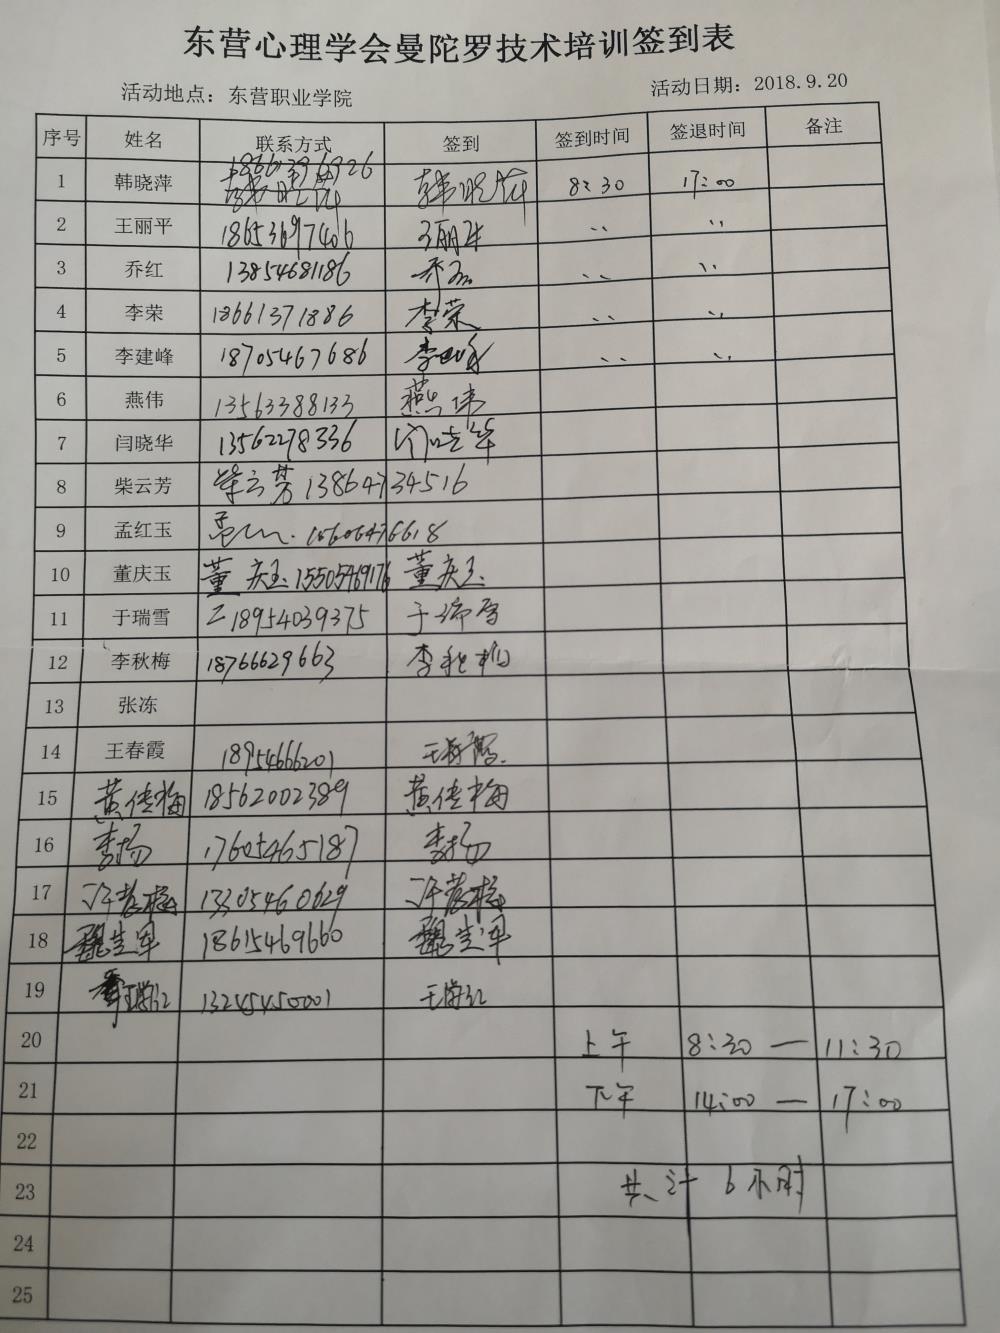 东营心理学会曼陀罗技术培训签到表
活动地点：东营职业学院 活动日期：2018.9.20
序号 姓名 联系方式 签到 签到时间 签退时间 备注
1 韩晓萍 韩晓萍 8:30 17:00
2 王丽平 18653697406 王丽平 〃 〃
3 乔红 13854681186 乔红 〃 〃
4 李荣 18661371886 李荣 〃 〃
5 李建峰 18705467686 李建峰 〃 〃
6 燕伟 13563388133 燕伟
7 闫晓华 13562278336 闫晓华
8 柴云芳 柴云芳 13864734516
9 孟红玉 15606476618
10 董庆玉 董庆玉 15505469176 董庆玉
11 于瑞雪 18954039375 于瑞雪
12 李秋梅 18766629663 李秋梅
13 张冻
14 王春霞 18954666201 王春霞
15 黄传梅 18562002389 黄传梅
16 李扬 17605465187 李扬
17 13305460629
18 18615469660
19 13245450001
20 上午 8:30 — 11:30
21 下午 14:00 — 17:00
22
23 共计 6小时
24
25